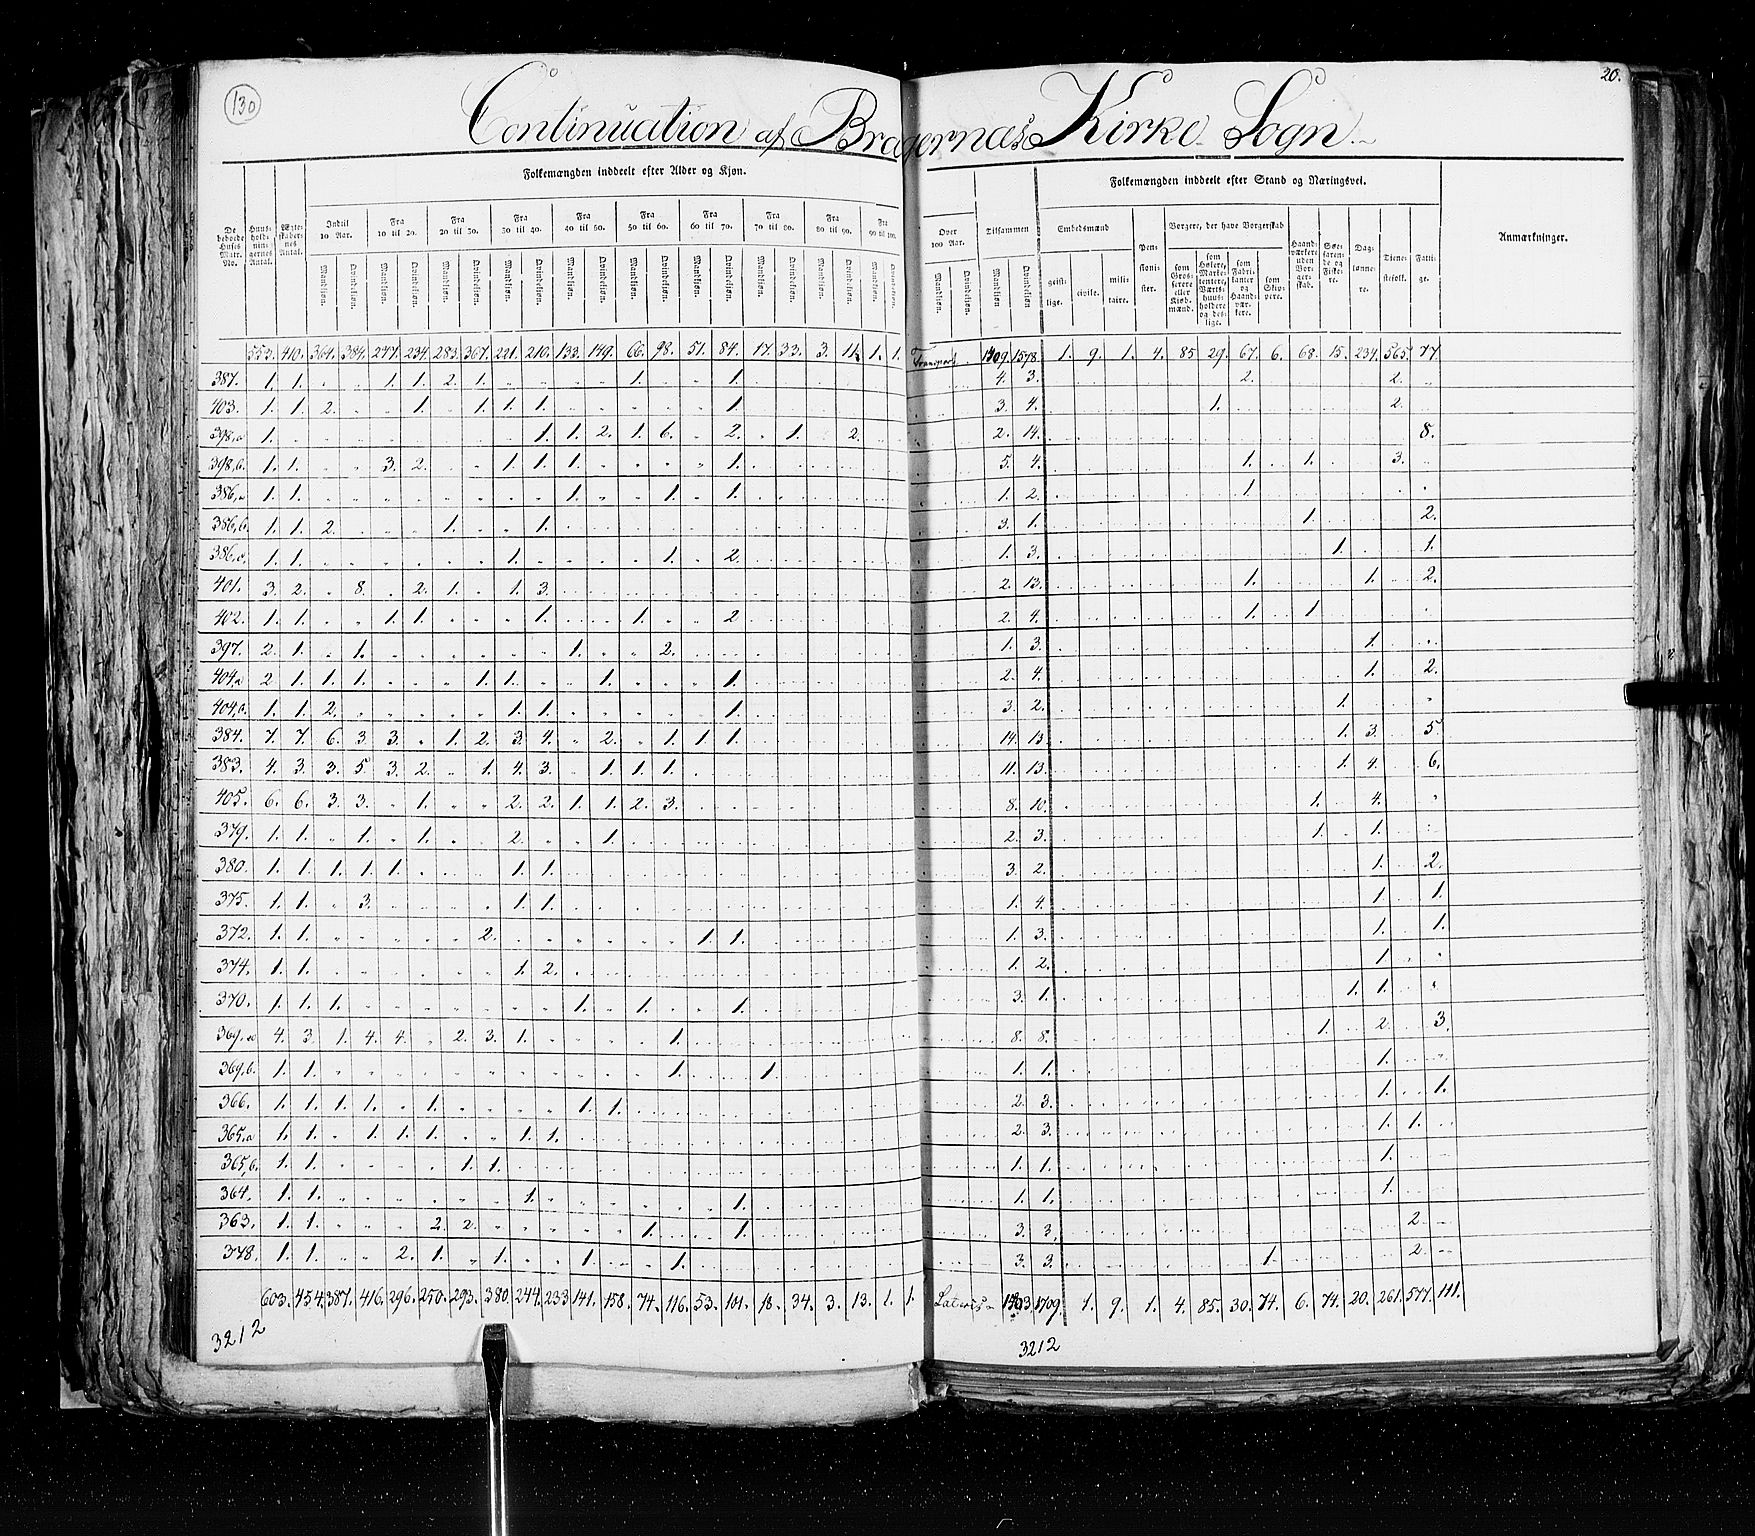 130
20.
Continuation af Bragernæs Kirke Sogn.
Folkemængden inddeelt efter Alder og Kjøn.
Folkemængden inddeelt efter Stand og Næringsvei.
De beboede Huses Matr. No.
Huus-hold-nin-gernes Antal.
Ægte-skaber-nes Antal.
Indtil 10 Aar.
Fra 10 til 20.
Fra 20 til 30.
Fra 30 til 40.
Fra 40 til 50.
Fra 50 til 60.
Fra 60 til 70.
Fra 70 til 80.
Fra 80 til 90.
Fra 90 til 100.
Over 100 Aar.
Tilsammen
Mandkjøn. Qvindekjøn.
Embedsmænd
geist-lige. civile. mili-taire.
Pen-sioni-ster.
Borgere, der have Borgerskab
som Gros-serere eller Kjøb-mænd.
som Høkere, Marke-tentere, Værts-huus-holdere og des-lige.
som Fabri-kanter og Haand-vær-kere.
som Skip-pere.
Haand-værkere uden Bor-ger-skab.
Søe-farende og Fiske-re.
Dag-lønne-re.
Tiene-stefolk.
Fatti-ge.
Anmærkninger.
553. 410. 364. 384. 247. 234. 283. 367. 221. 210. 133. 149. 66. 98. 51. 84. 17. 33. 3. 11. 1. 1. Transport 1409. 1578. 1. 9. 1. 4. 85 29. 67. 6. 68. 15. 234. 565. 77.
387. 1. 1. 1. 1. 2. 1. 1. 1. 4. 3. 2. 2.
403. 1. 1. 2. 1. 1. 1. 1. 1. 3. 4. 1. 2.
398,a 1. 1. 1. 2. 1. 6. 2. 1. 2. 2. 14. 8.
398,b. 1. 1. 3. 2. 1. 1. 1. 1. 5. 4. 1. 1. 3.
386,a 1. 1. 1. 1. 1. 1. 2. 1.
386,b. 1. 1. 2. 1. 1. 3. 1. 1. 2.
386,c. 1. 1. 1. 1. 2. 1. 3. 1. 1.
401. 3. 2. 8. 2. 1. 1. 3. 2. 13. 1. 1. 2.
402. 1. 1. 1. 1. 1. 1. 2 2. 4. 1. 1.
397. 2. 1. 1. 1. 2. 1. 3. 1.
404,a 2 1. 1. 1. 1. 1. 1. 1. 2. 4. 1. 2.
404,b. 1. 1. 2. 1. 1. 1. 3. 2. 1.
384. 7. 7. 6. 3. 3. 1. 2. 3. 4. 2. 1. 1. 1. 14. 13. 1. 3. 5
383. 4. 3. 3. 5. 3. 2. 1. 4. 3. 1. 1. 1. 11. 13. 1. 4. 6.
405. 6. 6. 3. 3. 1. 2. 2. 1. 1. 2. 3. 8. 10. 1. 4.
379. 1. 1. 1. 1. 2. 1. 2. 3. 1. 1.
380. 1. 1. 1. 1. 1. 1. 1. 3. 2. 1. 2.
375. 1. 1. 3. 1. 1. 1. 4. 1. 1.
372. 1. 1. 2. 1. 1. 1. 3. 1. 1.
374. 1. 1. 1. 2. 1. 2. 1.
370. 1. 1. 1. 1. 1. 1. 3. 1. 1. 1.
369,a 4. 3. 1. 4. 4. 2. 3. 1. 1. 8. 8. 1. 2. 3.
369,b. 1. 1. 1. 1. 1. 1. 1.
366. 1. 1. 1. 1. 1. 1. 1. 2. 3. 1. 1.
365,a 1. 1. 1. 1. 1. 1. 1. 2. 3. 1. 1.
365,b. 1. 1. 1. 1. 1. 1. 1.
364. 1. 1. 1. 1. 1. 1. 1.
363. 1. 1. 2. 2. 1. 1. 3. 3. 2.
378. 1. 1. 2. 1. 1. 1. 1. 3. 3. 1. 2.
603. 454. 387. 416. 296. 250. 293. 380. 244. 233 141. 158. 74. 116. 53. 101. 18. 34. 3. 13. 1. 1. Lateris 1709. 1. 9. 1. 4. 85. 30. 74. 6. 74. 20. 261. 577. 111.
3212
3212